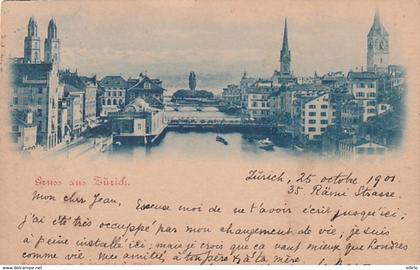 Gruss aus Zürich.
Zürich, 25 octobre 1901
35. Rämi Strasse.
Mon cher Jean, Excuse moi de ne t'avoir écrit jusqu'ici,
j'ai été très occupé par mon changement de vie; je suis
à peine installé ici; mais je crois que ca vaut mieux que Londres
comme vie. Mes amitiés à ton père & à ta mère.